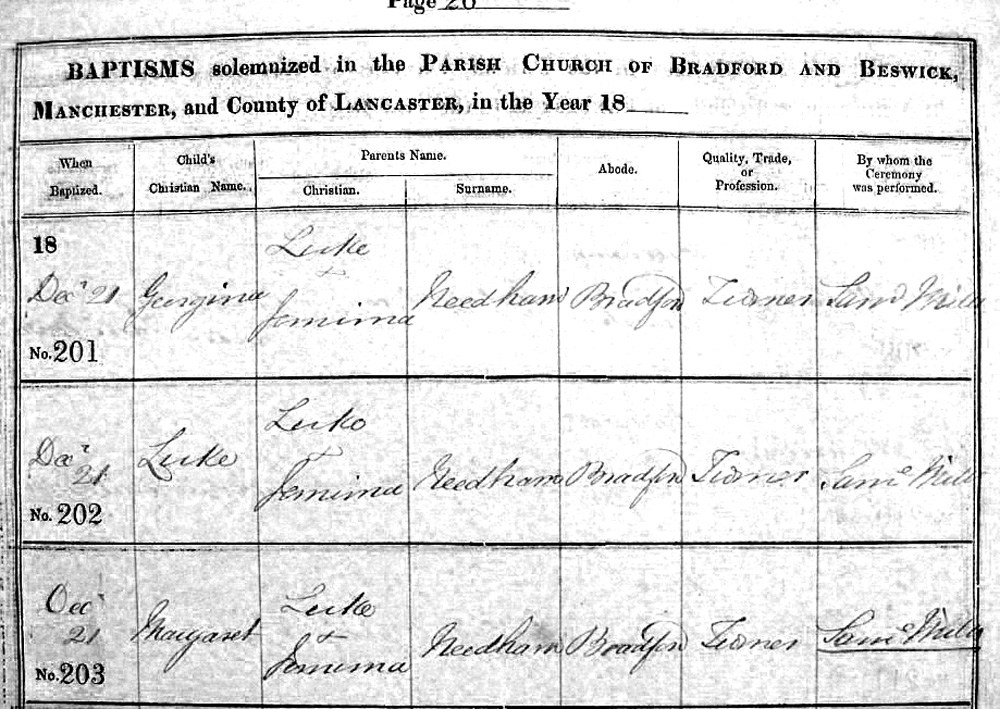 Page 20
BAPTISMS solemnized in the PARISH CHURCH OF BRADFORD AND BESWICK,
MANCHESTER, and County of LANCASTER, in the Year 18
When Baptized. Child's Christian Name. Parents Name. Christian. Surname. Abode. Quality, Trade, or Profession. By whom the Ceremony was performed.
18
Luke
Decr 21 Georgina + Jemima Needham Bradford Saml
No. 201
Luke
Decr 21 Luke + Jemima Needham Bradford Saml
No. 202
Luke
Decr 21 Margaret + Jemima Needham Bradford Saml
No. 203